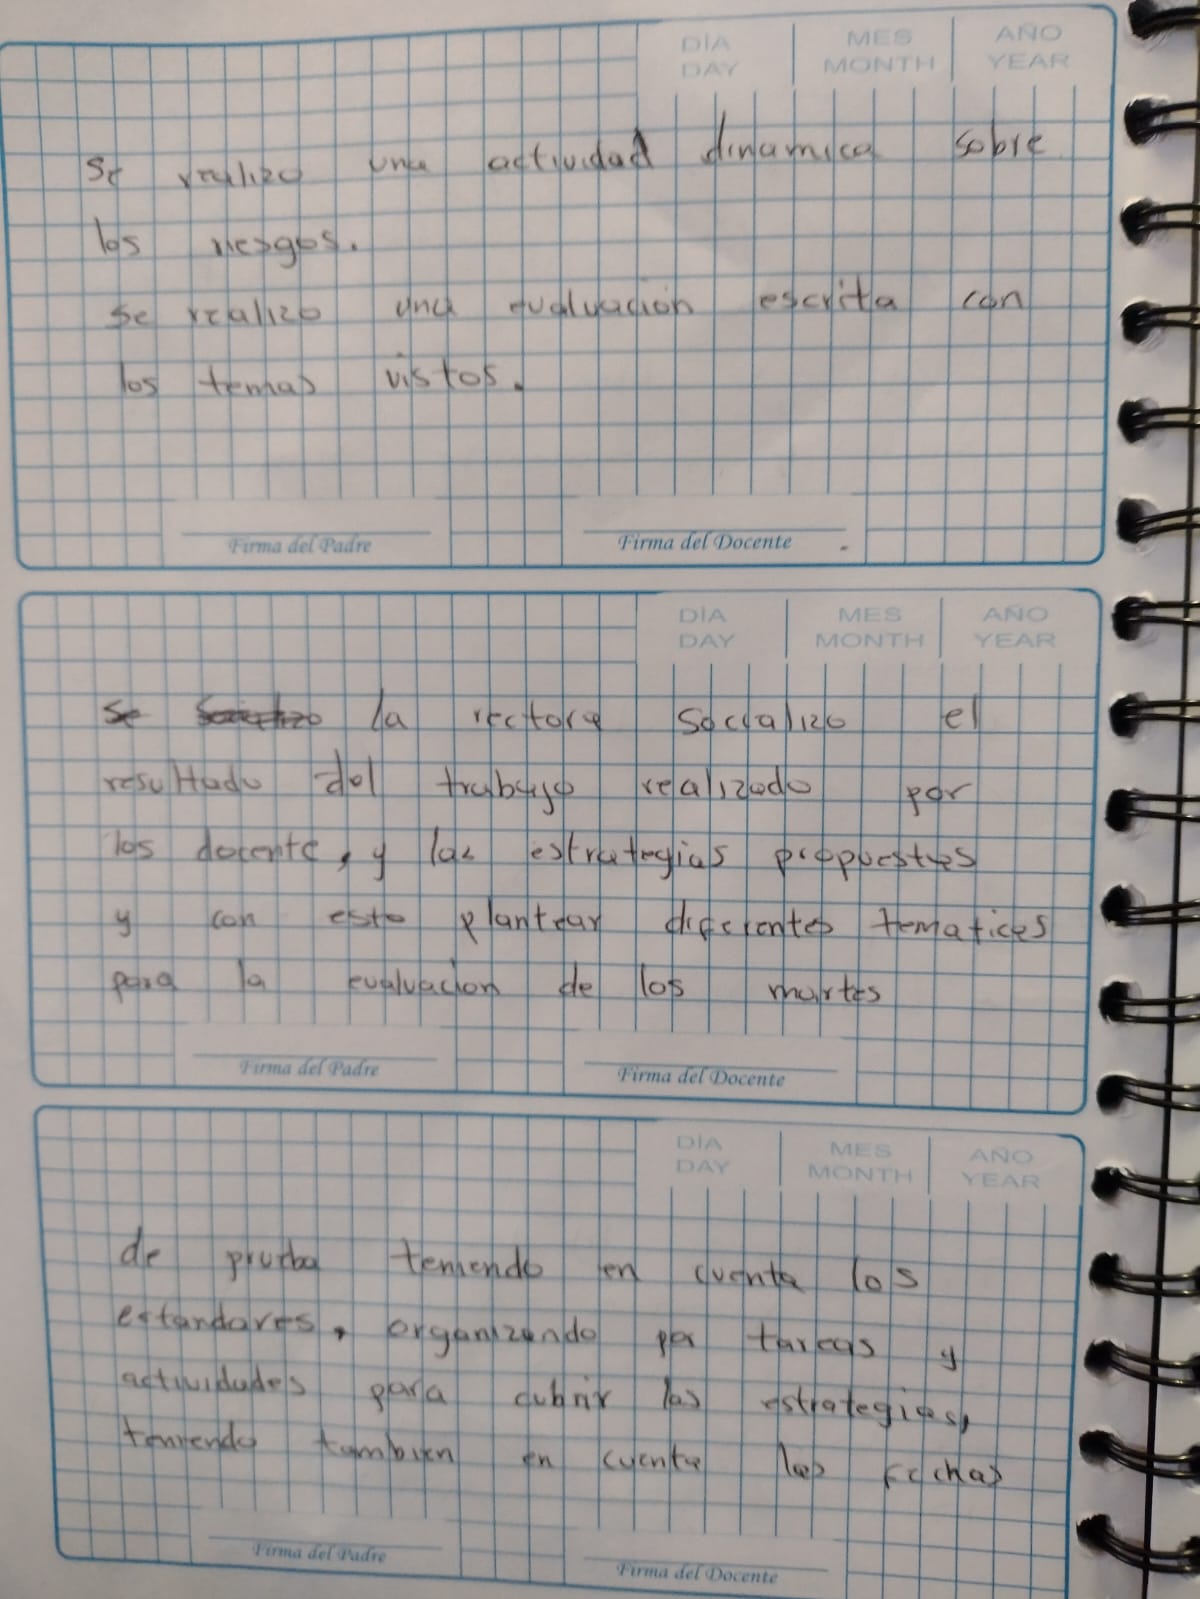 DÍA MES AÑO
DAY MONTH YEAR
Se realizo una actividad dinamica sobre
los riesgos.
se realizo una evaluación escrita con
los temas vistos.
Firma del Padre Firma del Docente
DÍA MES AÑO
DAY MONTH YEAR
se la rectora socializo el
resultado del trabajo realizado por
los docente, y las estrategias propuestas
y con esto plantear diferentes tematicas
para la evaluacion de los martes
Firma del Padre Firma del Docente
DÍA MES AÑO
DAY MONTH YEAR
de prueba teniendo en cuenta los
estandares, organizando por tareas y
actividades para cubrir las estrategias,
teniendo tambien en cuenta las fechas
Firma del Padre Firma del Docente